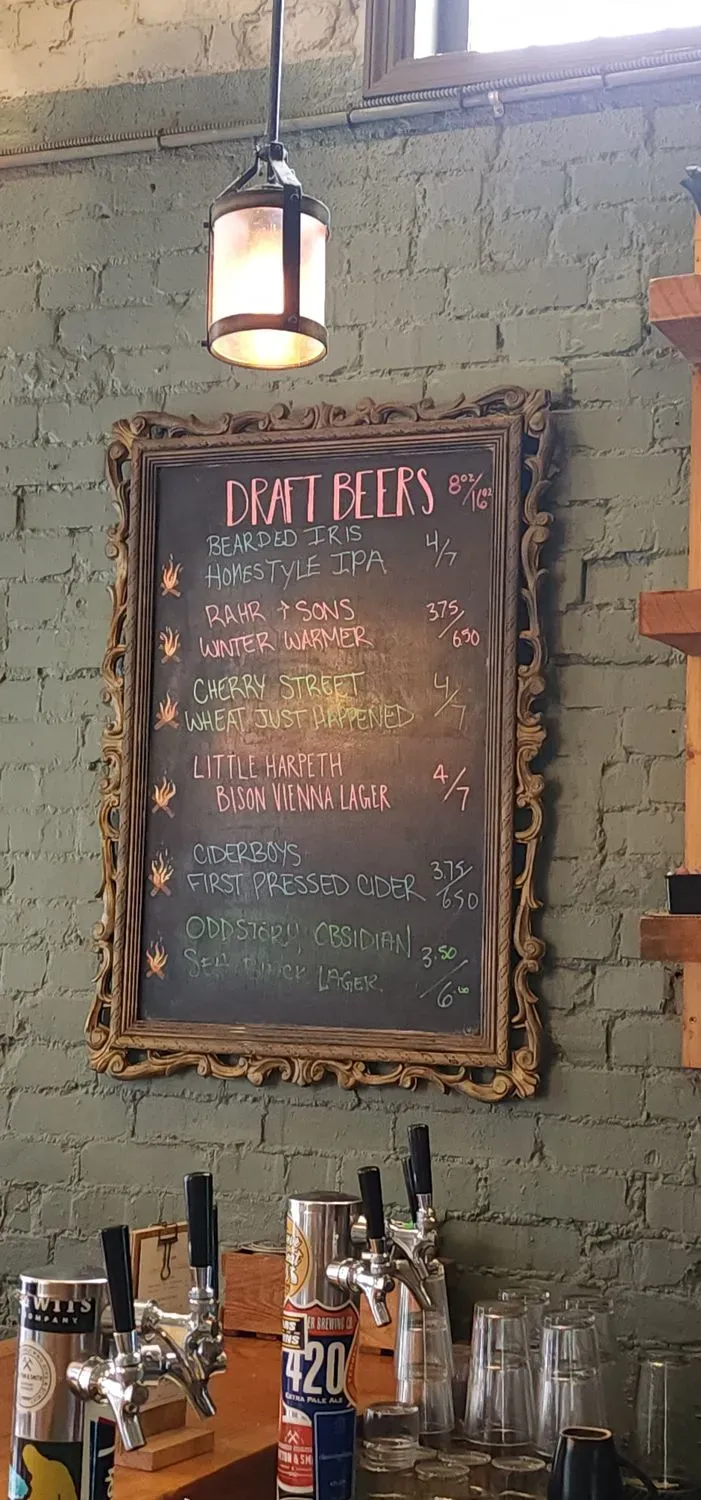 DRAFT BEERS 8oz/16oz
BEARDED IRIS
HOMESTYLE IPA 4/7
RAHR + SONS
WINTER WARMER 3.75/6.50
CHERRY STREET
WHEAT JUST HAPPENED 4/7
LITTLE HARPETH
BISON VIENNA LAGER 4/7
CIDERBOYS
FIRST PRESSED CIDER 3.75/6.50
ODDSTORY OBSIDIAN
LAGER 3.50/6.00
WITS
COMPANY
ER BREWING CO
420
EXTRA PALE ALE